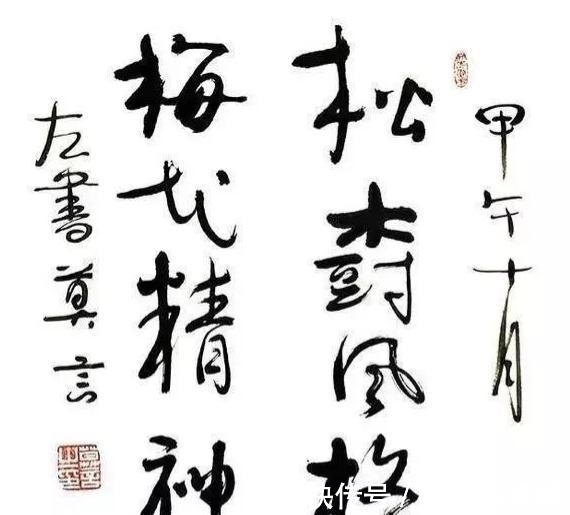 甲午十月
松樹风格
梅花精神
左書莫言
快传号 /